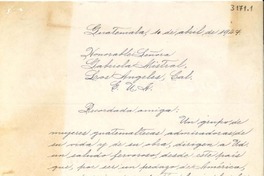 3171.1
Guatemala, 10 de abril de 1947
Honorable Señora
Gabriela Mistral,
Los Angeles, Cal.
E. U. A.
Recordada amiga:
Un grupo de
mujeres guatemaltecas, admiradoras de
su vida y de su obra, dirigen a Ud.
un saludo fervoroso desde este país
que, por ser un pedazo de América,